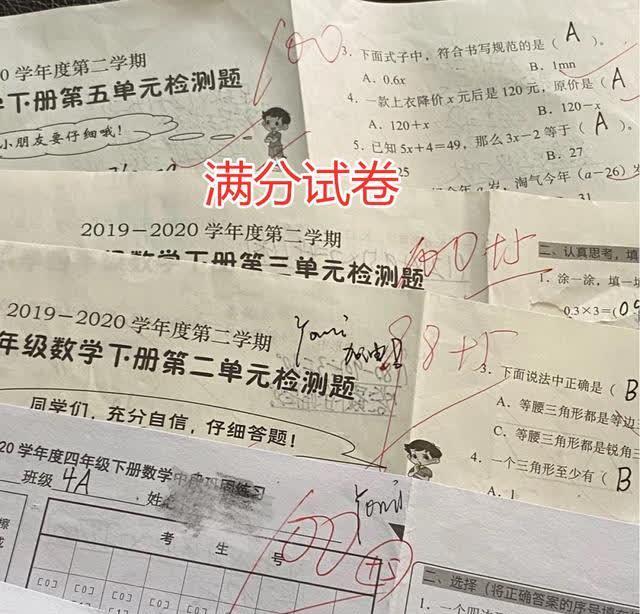 0学年度第二学期
下册第五单元检测题
小朋友要仔细哦！
100
3. 下面式子中，符合书写规范的是（ A ）。
A. 0.6x
B. 1mn
4. 一款上衣降价x元后是120元，原价是（ A
A. 120+x
B. 120-x
5. 已知5x+4=49，那么3x-2等于（ A ）。
25
B. 27
今年a岁，淘气今年（a-26）岁
31
满分试卷
2019-2020学年度第二学期
级数学下册第三单元检测题
100+5
二、认真思考，填
1. 涂一涂，填一填
0.3×3=(0
2019-2020学年度第二学期
年级数学下册第二单元检测题
Yomi
加油
98+5
同学们，充分自信，仔细答题！
3. 下面说法中正确是（ B
A. 等腰三角形都是等边三
C. 等腰三角形都是锐角三
4. 一个三角形至少有（ B
A. 1
20学年度四年级下册数学
练习
班级 4A
姓
Yomi
100
+5
考 生 号
[0] [0] [0] [0] [0] [0] [0]
二、选择（将正确答案的序号填
1. 一个四